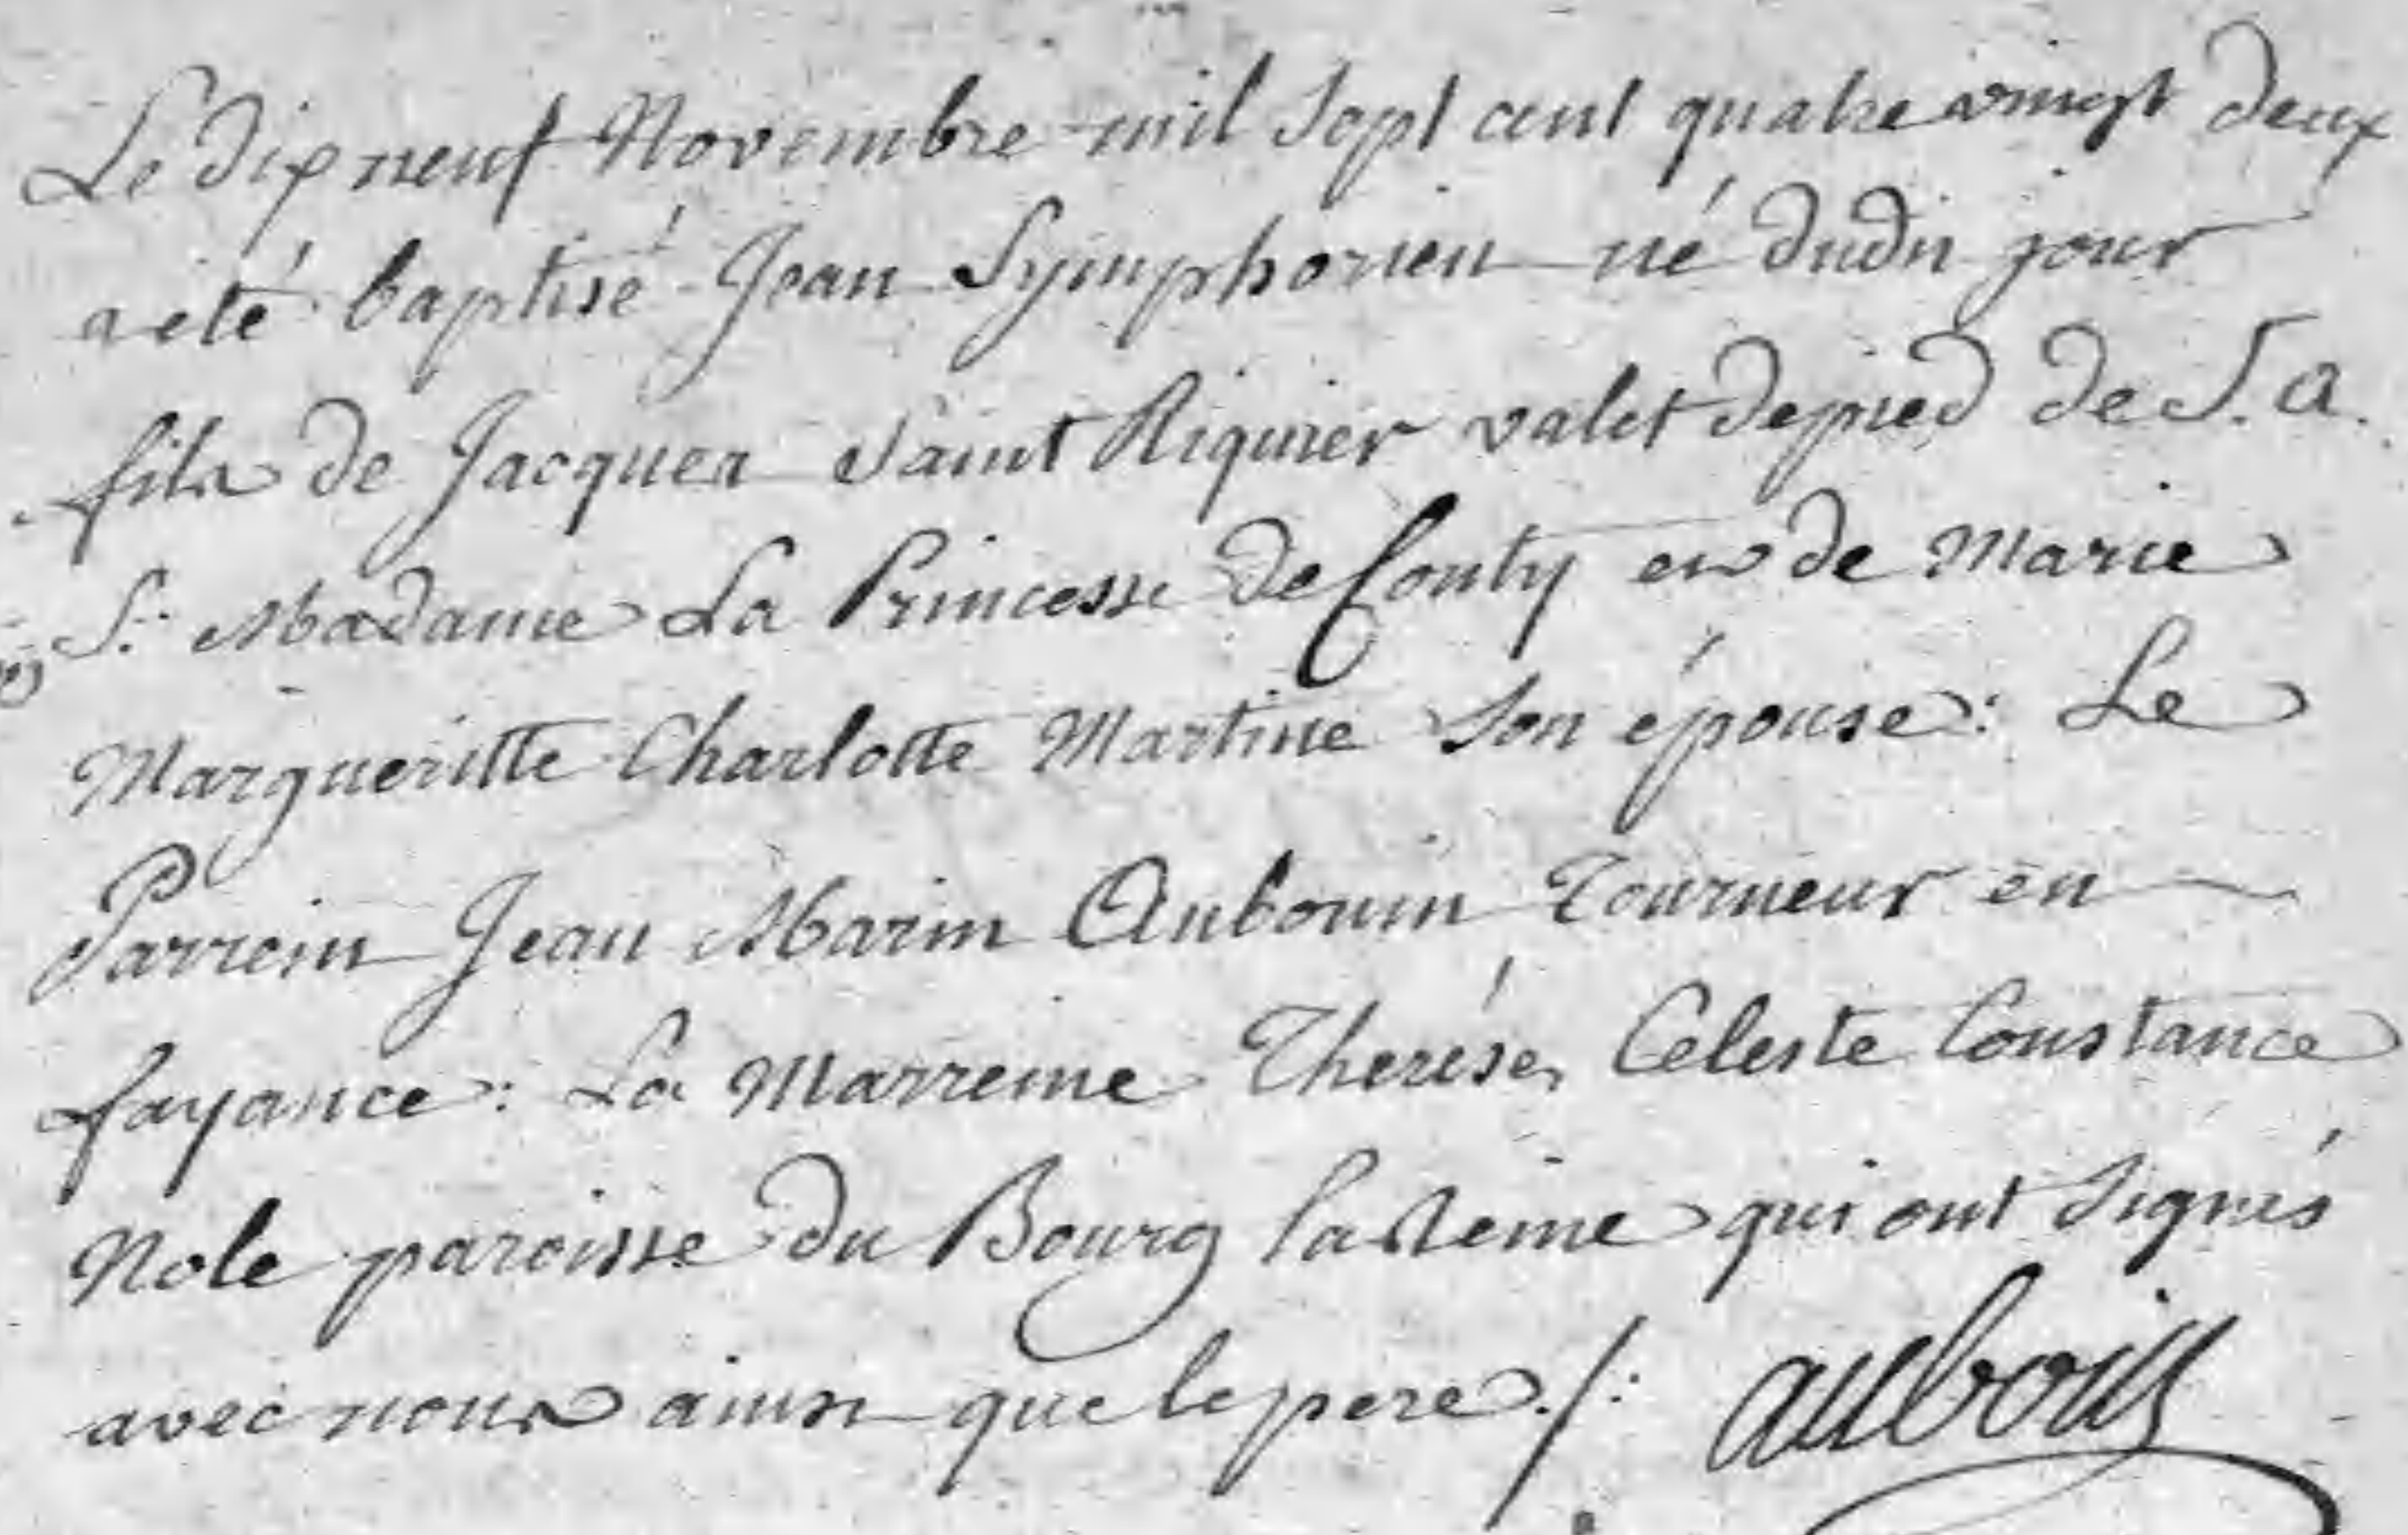 Le dix neuf Novembre mil Sept cent quatre vingt deux
a été baptisé Jean Symphorien né dudit jour
fils de Jacques Saint Riquier valet de pied de S. A.
S. Madame La Princesse de Conty et de Marie
Margueritte Charlotte Martine Son épouse : Le
Parrein Jean Marin Aubouin Tourneur en
fayance : La Marreine Therése Celeste Constance
Nole paroisse du Bourg la Reine qui ont Signés
avec nous ainsi que le pere ./:
auboin